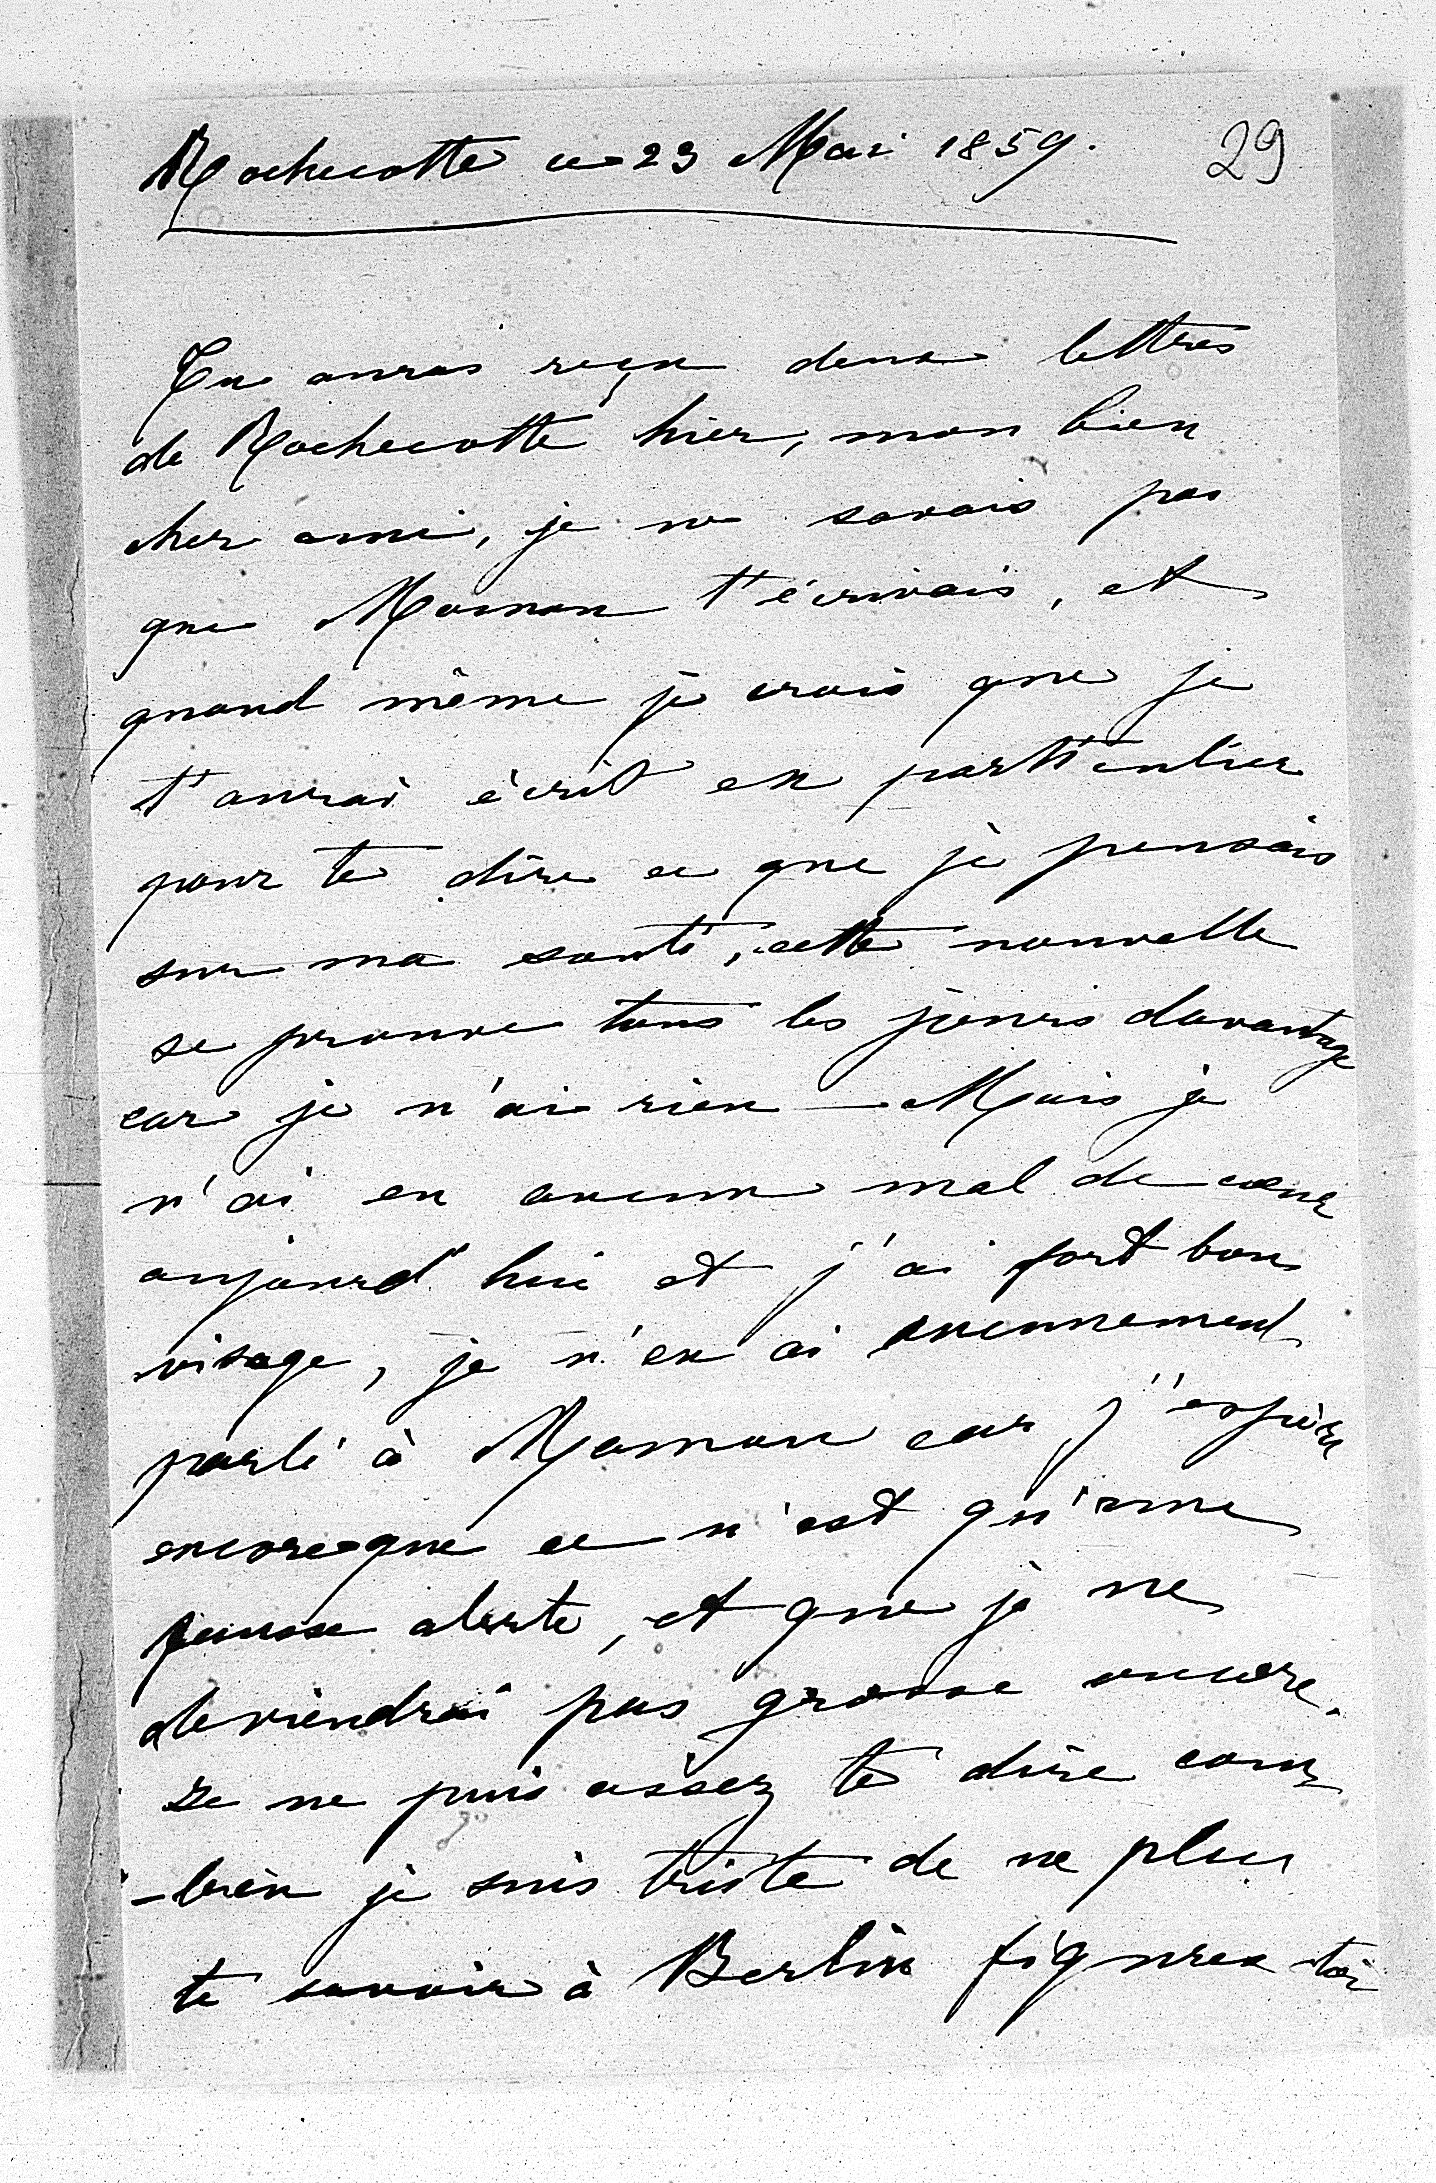 Rochecotte ce 23 Mai 1859. 29
Tu auras reçu deux lettres
de Rochecotte hier, mon bien
cher ami, je ne savais pas
que Maman t'écrivais, et
quand même je crois que je
t'aurai écrit en particulier
pour te dire ce que je pensais
sur ma santé, cette nouvelle
se prouve tous les jours davantage
car je n'ai rien — Mais je
n'ai eu aucun mal de cœur
aujourd'hui et j'ai fort bon
visage, je n'en ai aucunement
parlé à Maman car j'espère
encore que ce n'est qu'une
fausse alerte, et que je ne
deviendrai pas grosse encore.
Je ne puis assez te dire com
-bien je suis triste de ne plus
te savoir à Berlin figures toi